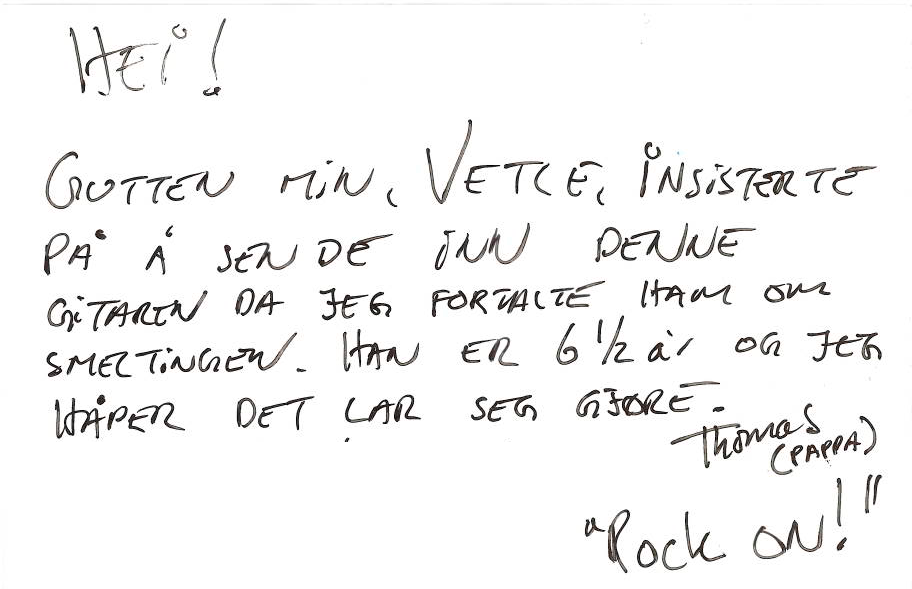 HEI!
GUTTEN MIN, VETLE, INSISTERTE
PÅ Å SENDE INN DENNE
GITAREN DA JEG FORTALTE HAM OM
SMELTINGEN. HAN ER 6 1/2 år OG JEG
HÅPER DET LAR SEG GJØRE.
Thomas
(PAPPA)
"Rock ON!"